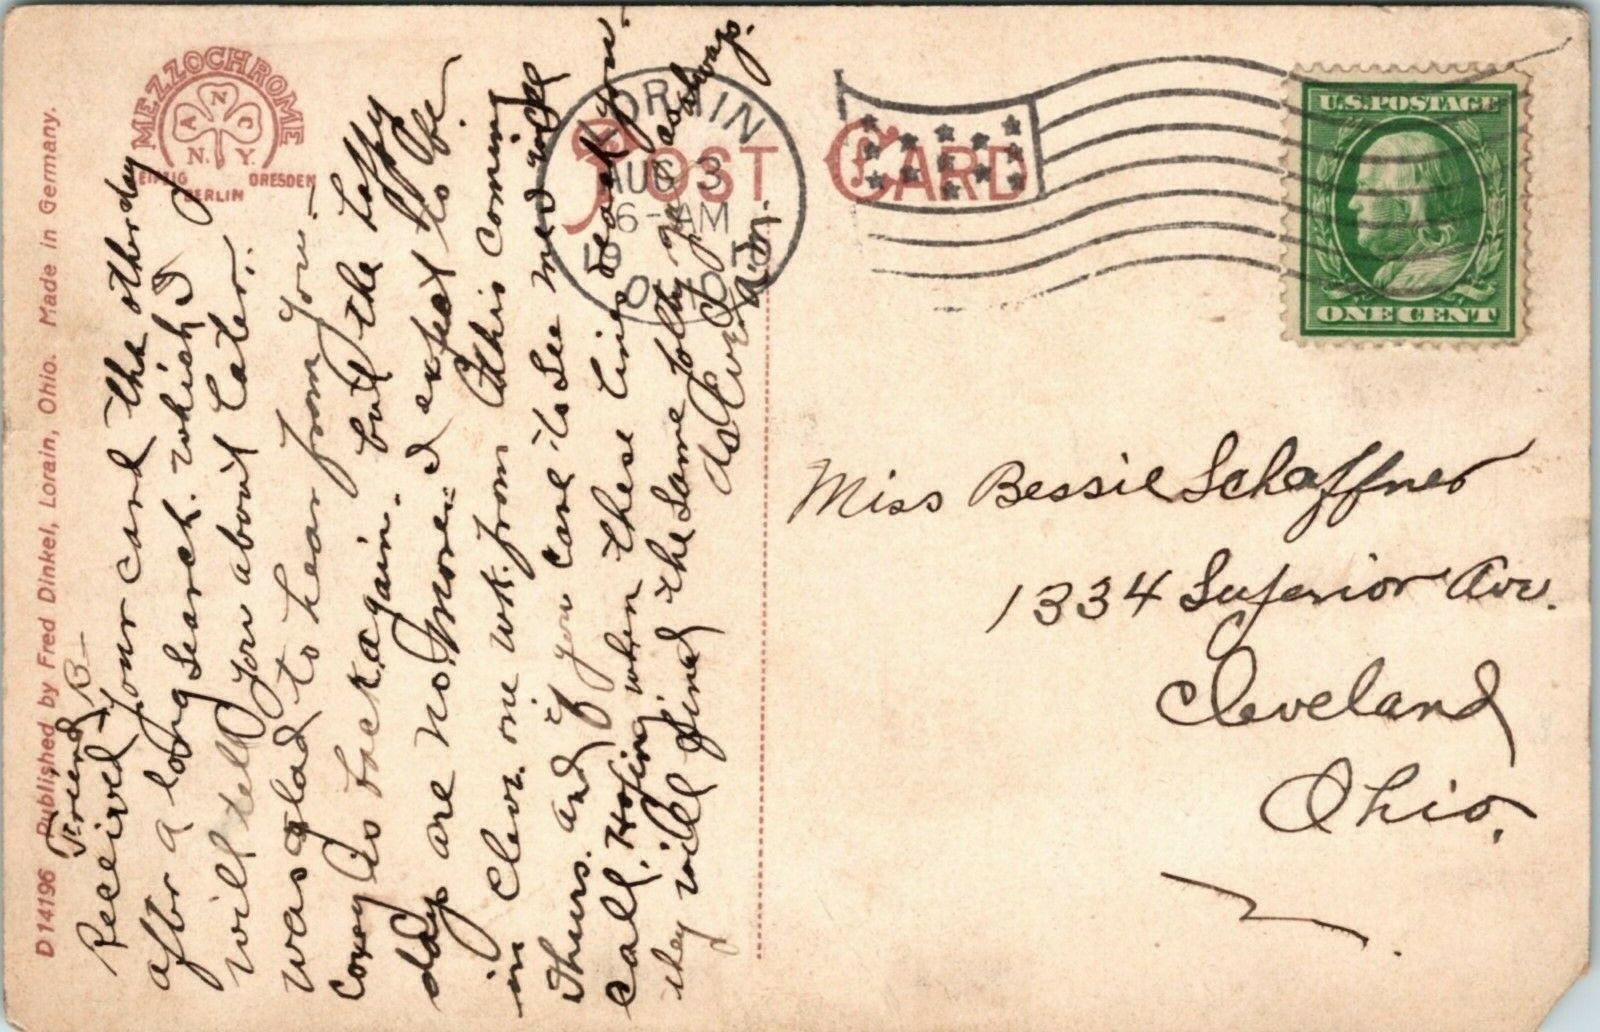 D 14196 Published by Fred Dinkel, Lorain, Ohio. Made in Germany.
MEZZOCHROME
A N D
N. Y.
LEIPZIG DRESDEN
BERLIN
POST CARD
LORAIN
AUG 3
6-AM
O.
U.S. POSTAGE
ONE CENT
Friend B-
Received your card the other day
after a long search. which I
will tell you about Later..
was glad to hear from you.-
Covey is back again. but the Lofty
days are no more = I expect to be
in Cleve. one wk. from this coming
Thurs. and if you care to see me will
call. Hoping when these lines reach you
they will find the same jolly as always.
as Ever
Miss Bessie Schaffner
1334 Superior Ave.
Cleveland
Ohio.